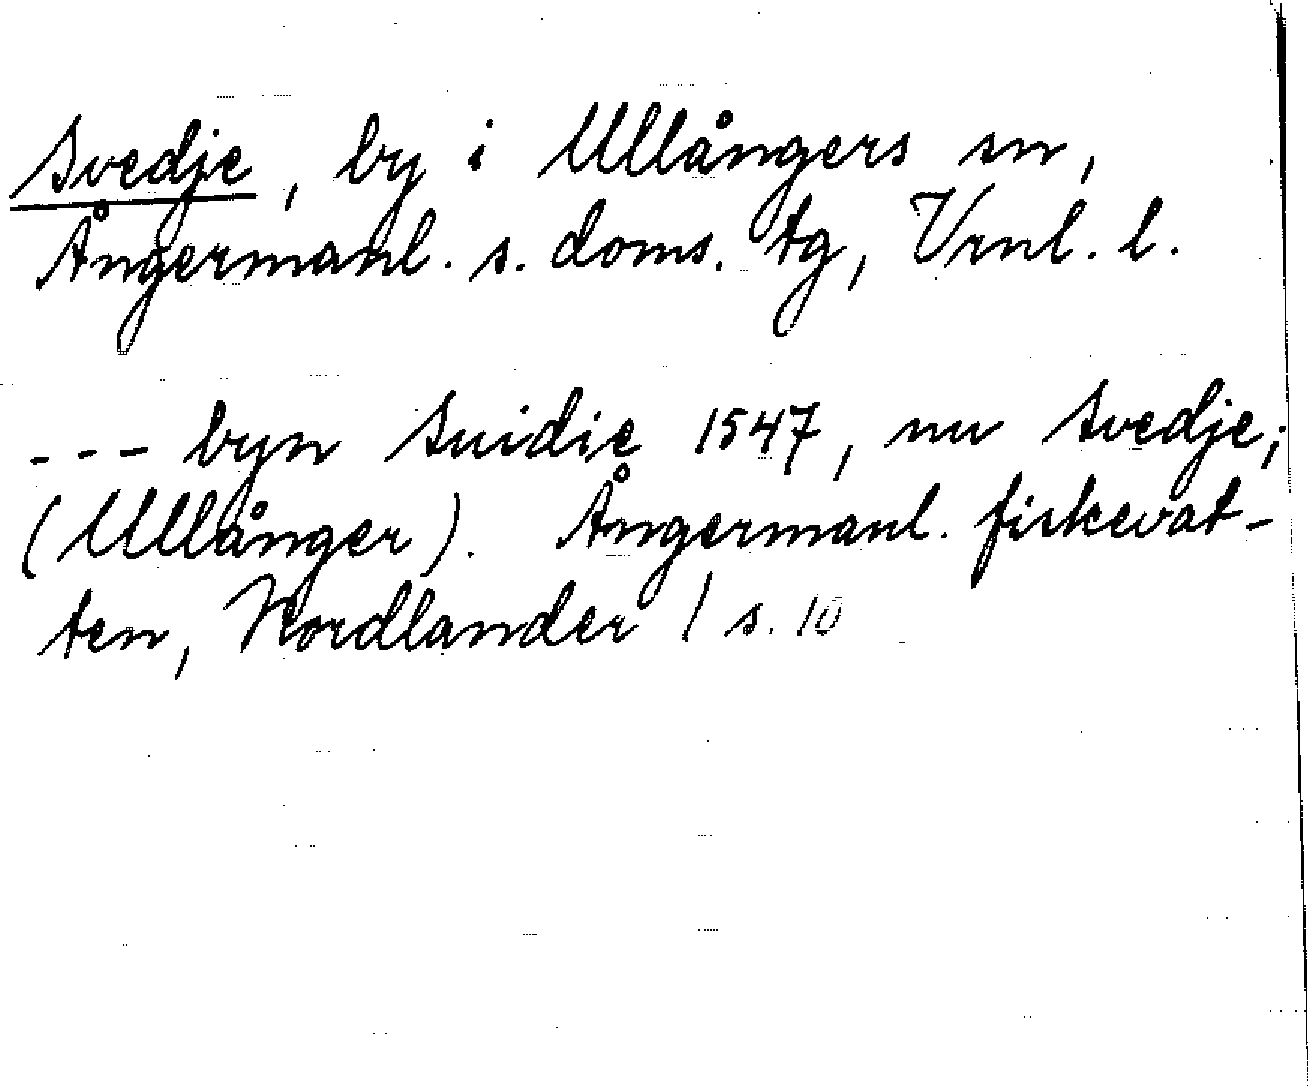 Svedje, by i Ullångers sn,
Ångermanl. s. doms. tg, Vrnl. l.
--- byn Suidie 1547, nu Svedje;
(Ullånger). Ångermanl. fiskevat-
ten, Nordlander / s. 10